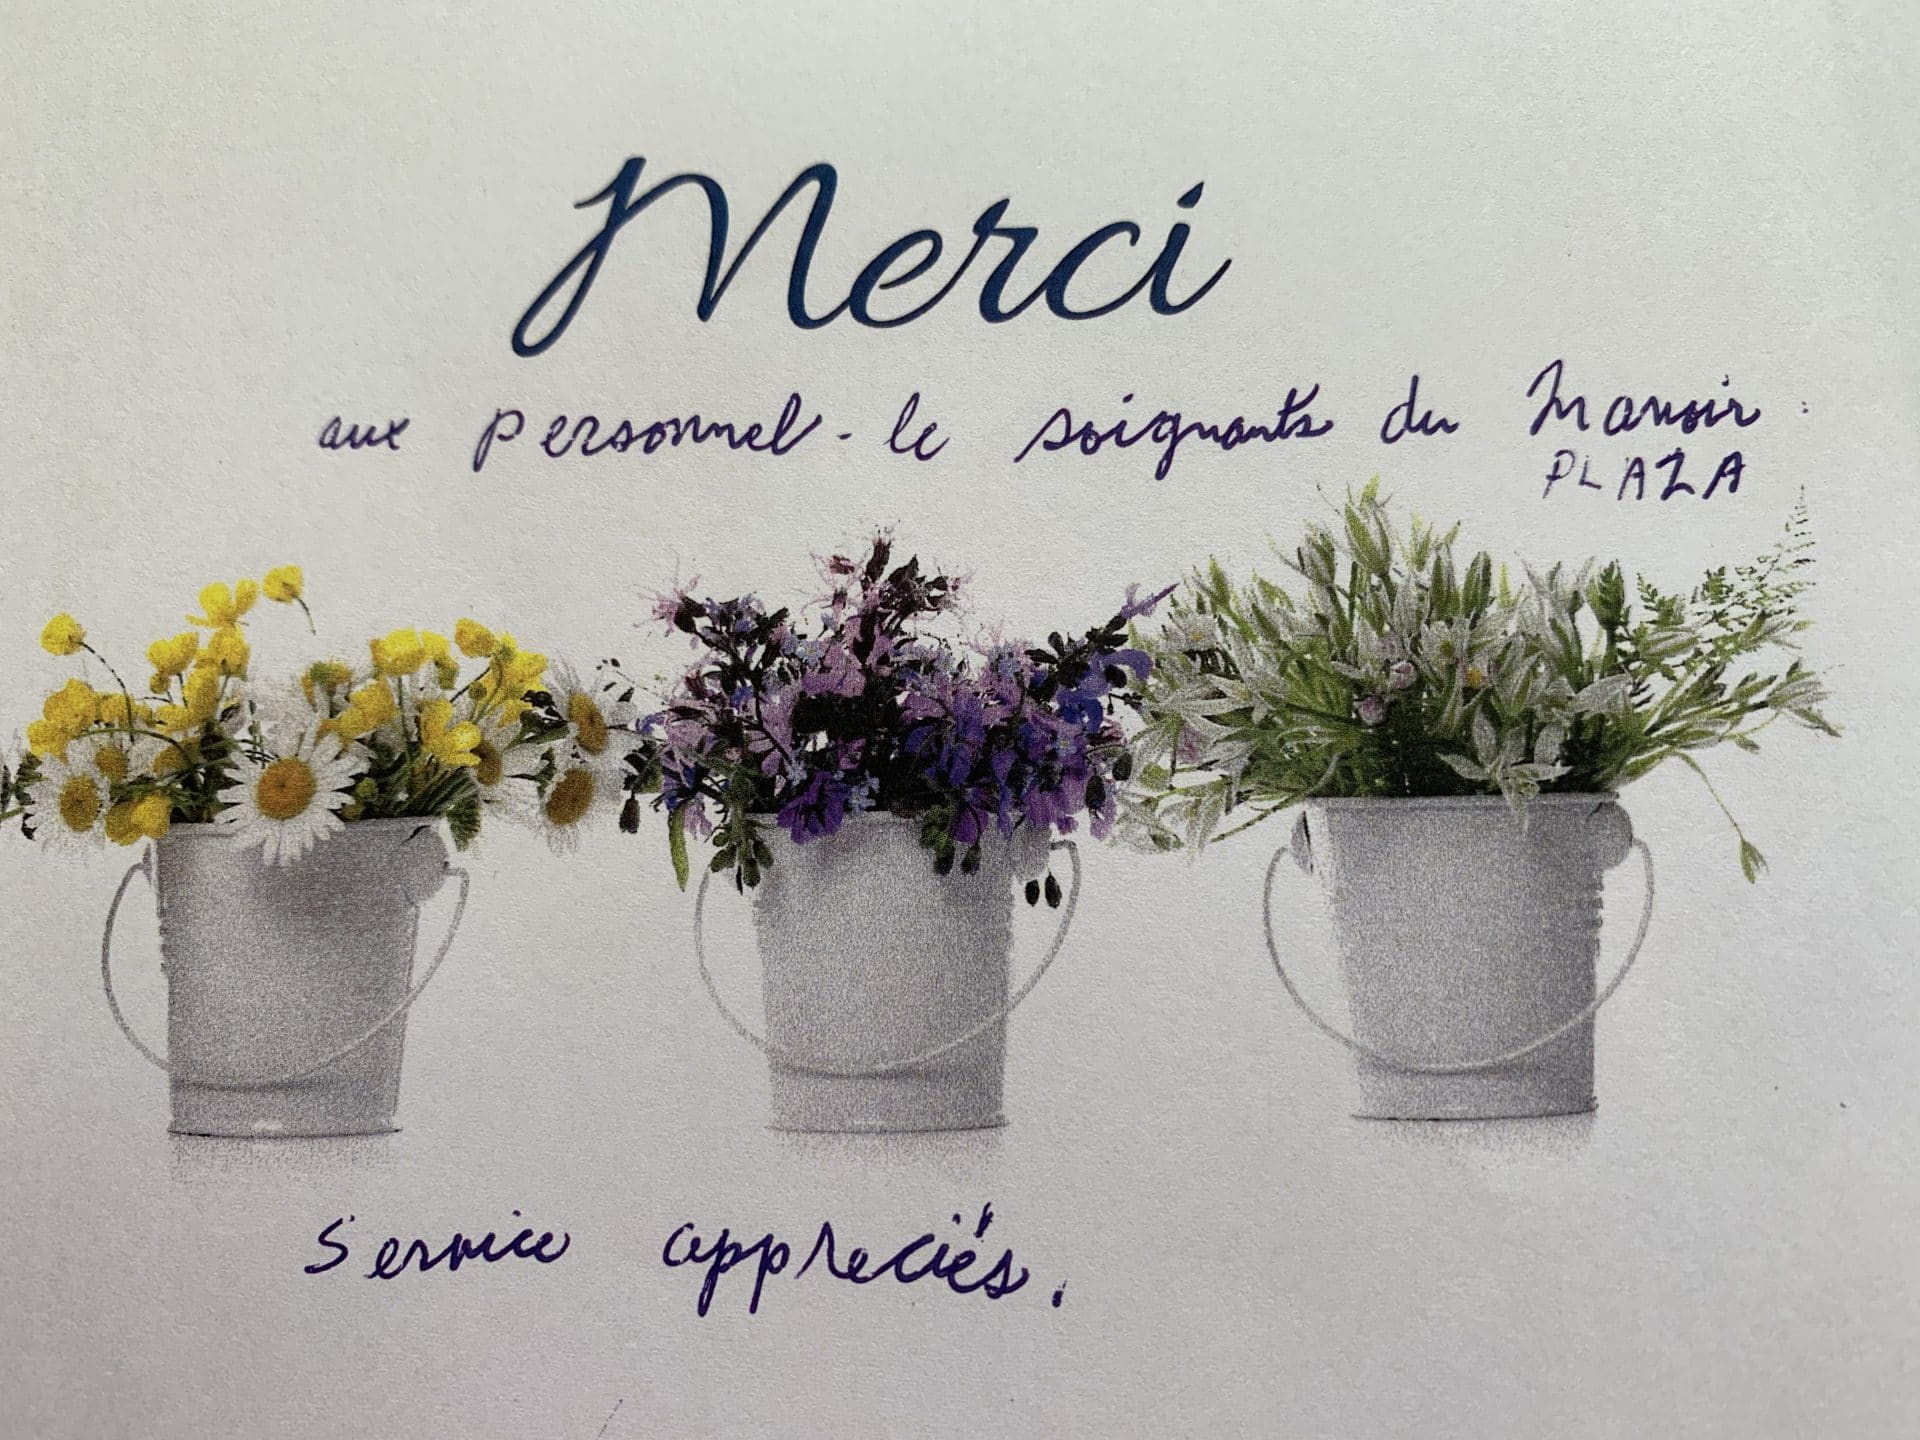 Merci
aux personnel - le soignants du Manoir
PLAZA
Service appreciés.